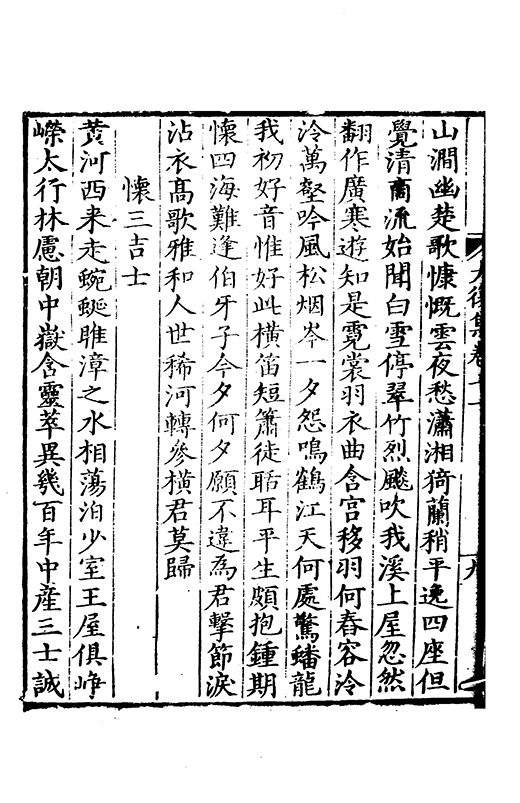 山澗幽楚歌慷慨雲夜愁瀟湘猗蘭稍平逸四座但
覺清商流始聞白雪停翠竹烈飈吹我溪上屋忽然
翻作廣寒遊知是霓裳羽衣曲含宫移羽何舂容泠
泠萬壑吟風松烟岑一夕怨鳴鶴江天何處驚蟠龍
我初好音惟好此橫笛短簫徒聒耳平生頗抱鍾期
懷四海難逢伯牙子今夕何夕願不違為君擊節淚
沾衣高歌雅和人世稀河轉參橫君莫歸
懷三吉士
黄河西来走蜿蜒睢漳之水相蕩泊少室王屋俱峥
嶸太行林慮朝中嶽含靈萃異幾百年中産三士誠